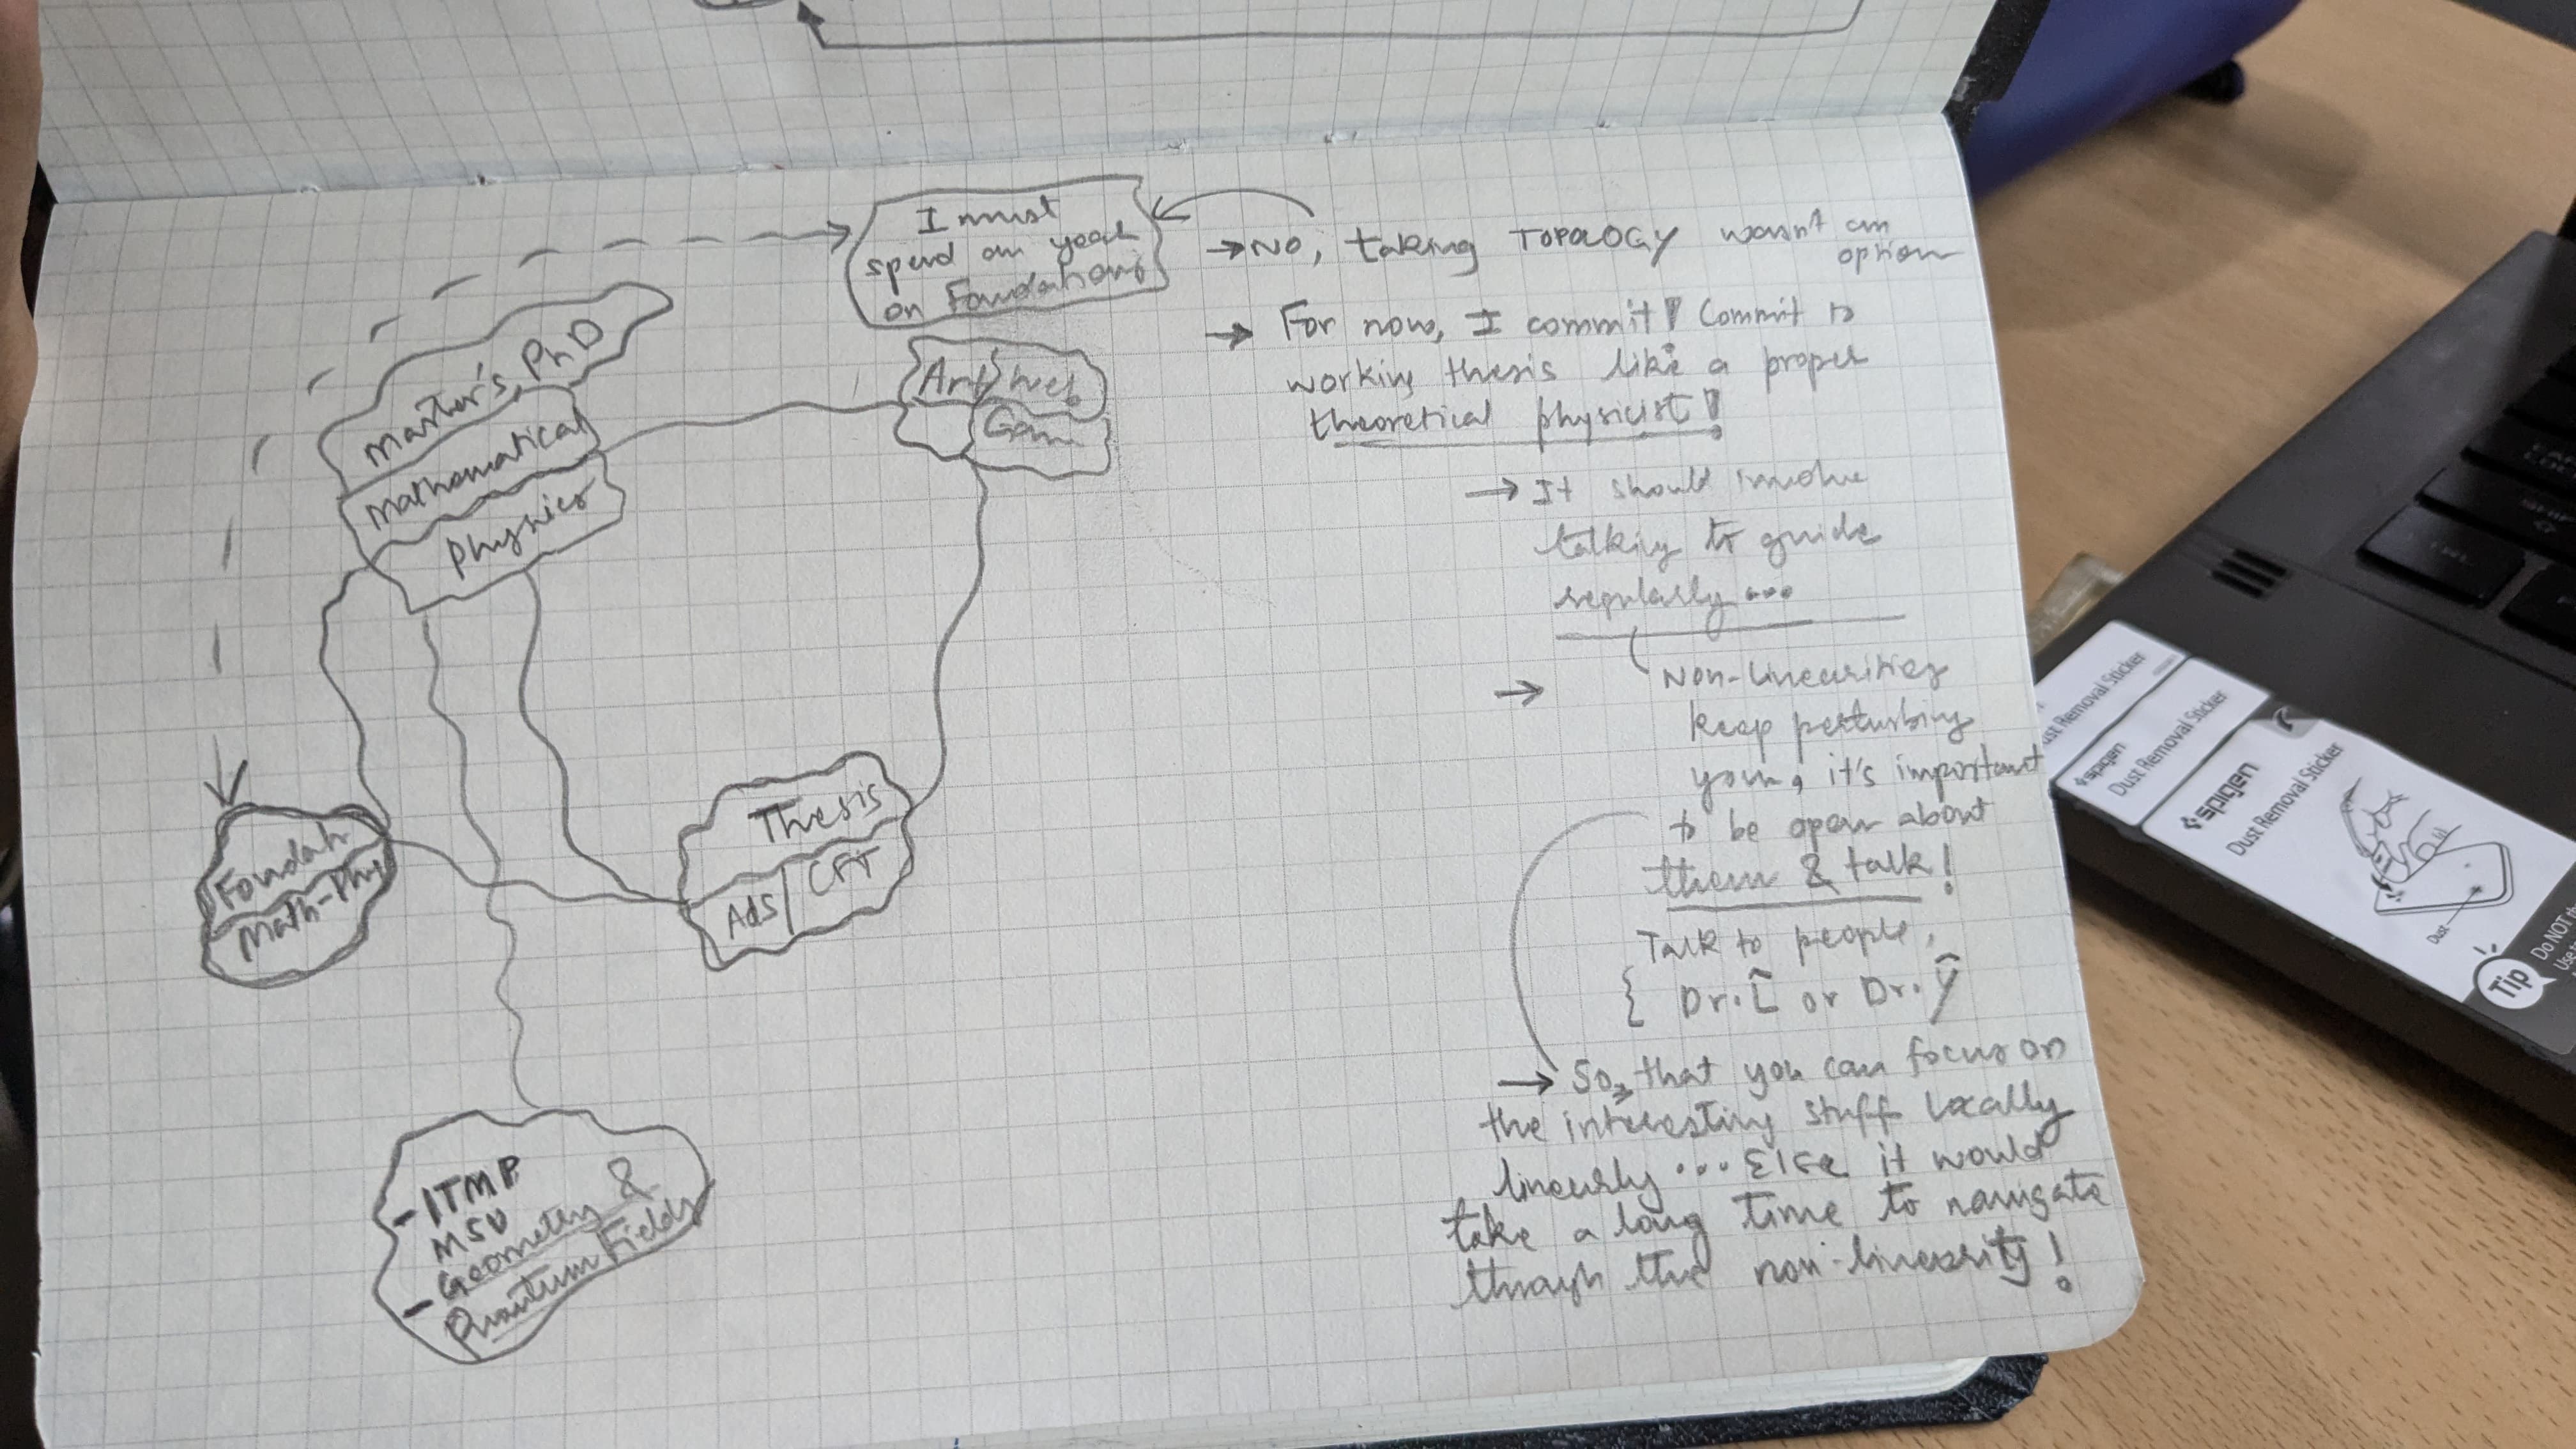 I must
spend an year
on Foundations
Master's, PhD
Mathematical
Physics
Art/
Gam
Thesis
AdS/CFT
Foudah
Math-Phy
- ITMP
MSU
- Geometry &
Quantum Fields
→ No, taking TOPOLOGY wasn't an
option
→ For now, I commit! Commit to
working thesis like a proper
theoretical physicist!
→ It should involve
talking to guide
regularly...
→ Non-linearities
keep perturbing
you, it's important
to be open about
them & talk!
Talk to people,
{ Dr. L̂ or Dr. Ŷ
→ So, that you can focus on
the interesting stuff locally
linearly ... Else it would
take a long time to navigate
through the non-linearity!
Dust Removal Sticker
spigen
Dust Removal Sticker
spigen
Dust Removal Sticker
Dust
Tip
Do NOT
Use